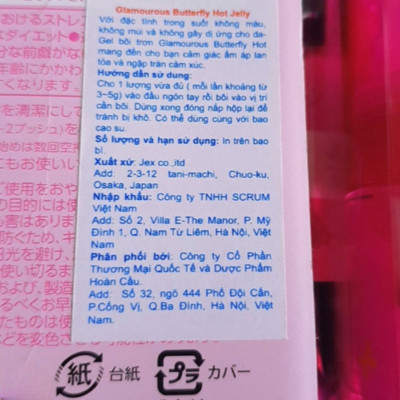 Glamourous Butterfly Hot Jelly
Với đặc tính trong suốt không màu,
không mùi và không gây dị ứng cho da-
Gel bôi trơn Glamourous Butterfly Hot
mang đến cho bạn cảm giác ấm áp lan
tỏa và ngập tràn cảm xúc.
Hướng dẫn sử dụng:
Cho 1 lượng vừa đủ ( mỗi lần khoảng từ
3~5g) vào đầu ngón tay rồi bôi vào vị trí
cần bôi. Dùng xong đóng nắp hộp lại để
tránh bị khô. Có thể dùng cùng với bao
cao su.
Số lượng và hạn sử dụng: In trên bao
bì.
Xuất xứ: Jex co.,itd
Add: 2-3-12 tani-machi, Chuo-ku,
Osaka, Japan
Nhập khẩu: Công ty TNHH SCRUM
Việt Nam
Add: Số 2, Villa E-The Manor, P. Mỹ
Đình 1, Q. Nam Từ Liêm, Hà Nội, Việt
Nam
Phân phối bởi: Công ty Cổ Phần
Thương Mại Quốc Tế và Dược Phẩm
Hoàn Cầu.
Add: Số 32, ngõ 444 Phố Đội Cấn,
P.Cống Vị, Q.Ba Đình, Hà Nội, Việt
Nam.
おけるストレス
ダイエット●
分な前戯がな
年齢にかかわ
くなります。
を清潔にして
-2プッシュ)を
始めは数回空押
てもお使いい
ご使用をおや
の目的には使
も害はありま
防ぐため、キ
日光を避け、
い使い切るま
および、製造
るべくお早
たものは使
どを変色させる可能性が
紙 台紙 プラ カバー